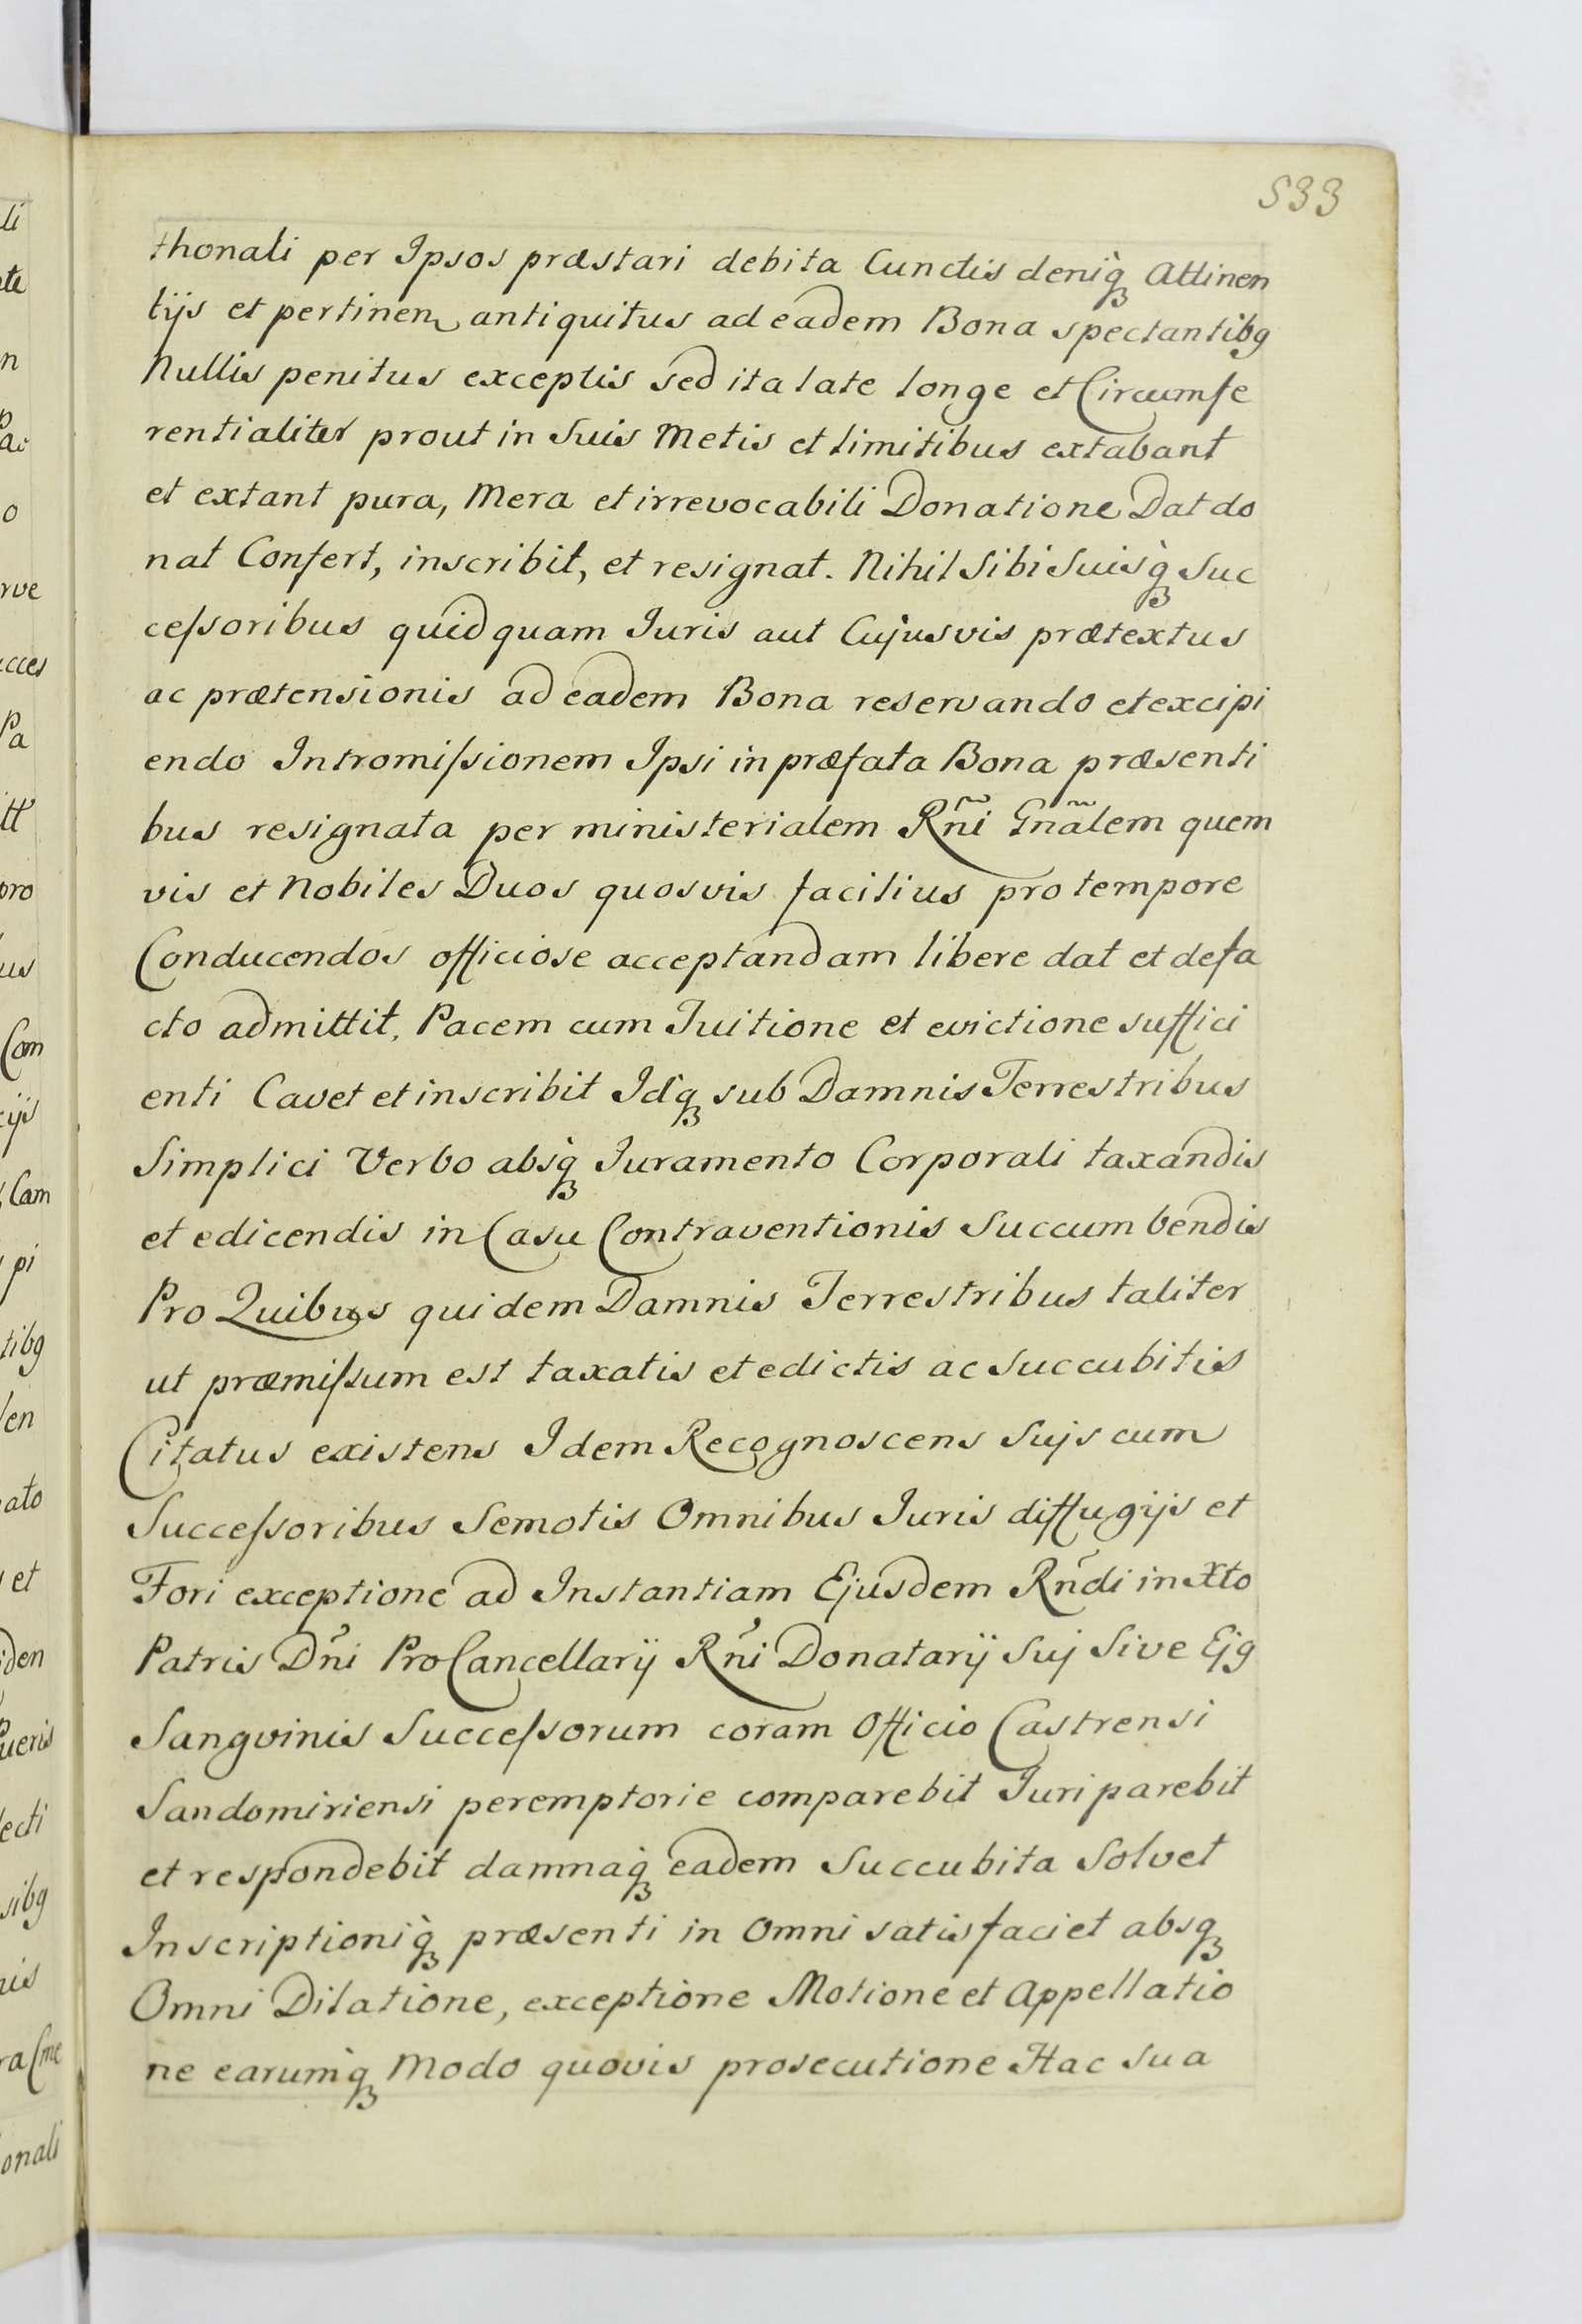 533
thonali per Ipsos præstari debita Cunctis deniq̀ꝫ Attinen
tijs et pertinen antiquitus ad eadem Bona spectantibꝰ
Nullis penitus exceptis sed ita late longe et Circumfe
rentialiter prout in Suis Metis et limitibus extabant
et extant pura, Mera et irrevocabili Donatione Dat do
nat Confert, inscribit, et resignat. Nihil Sibi Suisq̀ꝫ Suc
ceſsoribus quidquam Iuris aut Cujusvis prætextus
ac prætensionis ad eadem Bona reservando et excipi
endo Intromiſsionem Ipsi in præfata Bona præsenti
bus resignata per ministerialem Rñi Gnãlem quem
vis et Nobiles Duos quosvis facilius pro tempore
Conducendos officiose acceptandam libere dat et defa
cto admittit, Pacem cum Tuitione et evictione suffici
enti Cavet et inscribit Idq̀ꝫ sub Damnis Terrestribus
Simplici Verbo absq̀ꝫ Iuramento Corporali taxandis
et edicendis in Casu Contraventionis Succumbendis
Pro Quibus quidem Damnis Terrestribus taliter
ut præmiſsum est taxatis et edictis ac Succubitis
Citatus existens Idem Recognoscens Sujs cum
Succeſsoribus Semotis Omnibus Iuris diffugijs et
Fori exceptione ad Instantiam Ejusdem Rñdi in Xto
Patris Dñi ProCancellarij Rñi Donatarij Suj Sive Ejꝰ
Sangvinis Succeſsorum coram Officio Castrensi
Sandomiriensi peremptorie comparebit Iuri parebit
et respondebit damnaq̀ꝫ eadem Succubita Solvet
Inscriptioniq̀ꝫ præsenti in Omni satisfaciet absqꝫ
Omni Dilatione, exceptione Motione et Appellatio
ne earumq̀ꝫ Modo quovis prosecutione Hac Sua